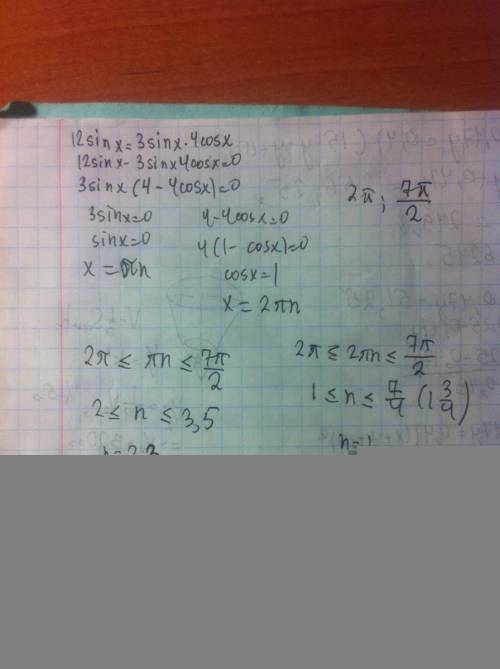 12sinx=3sinx·4cosx
12sinx-3sinx4cosx=0
3sinx(4-4cosx)=0
3sinx=0
sinx=0
x=πn
4-4cosx=0
4(1-cosx)=0
cosx=1
x=2πn
2π; 7π/2
2π ≤ πn ≤ 7π/2
2 ≤ n ≤ 3,5
2π ≤ 2πn ≤ 7π/2
1 ≤ n ≤ 7/4 (1 3/4)
n=1